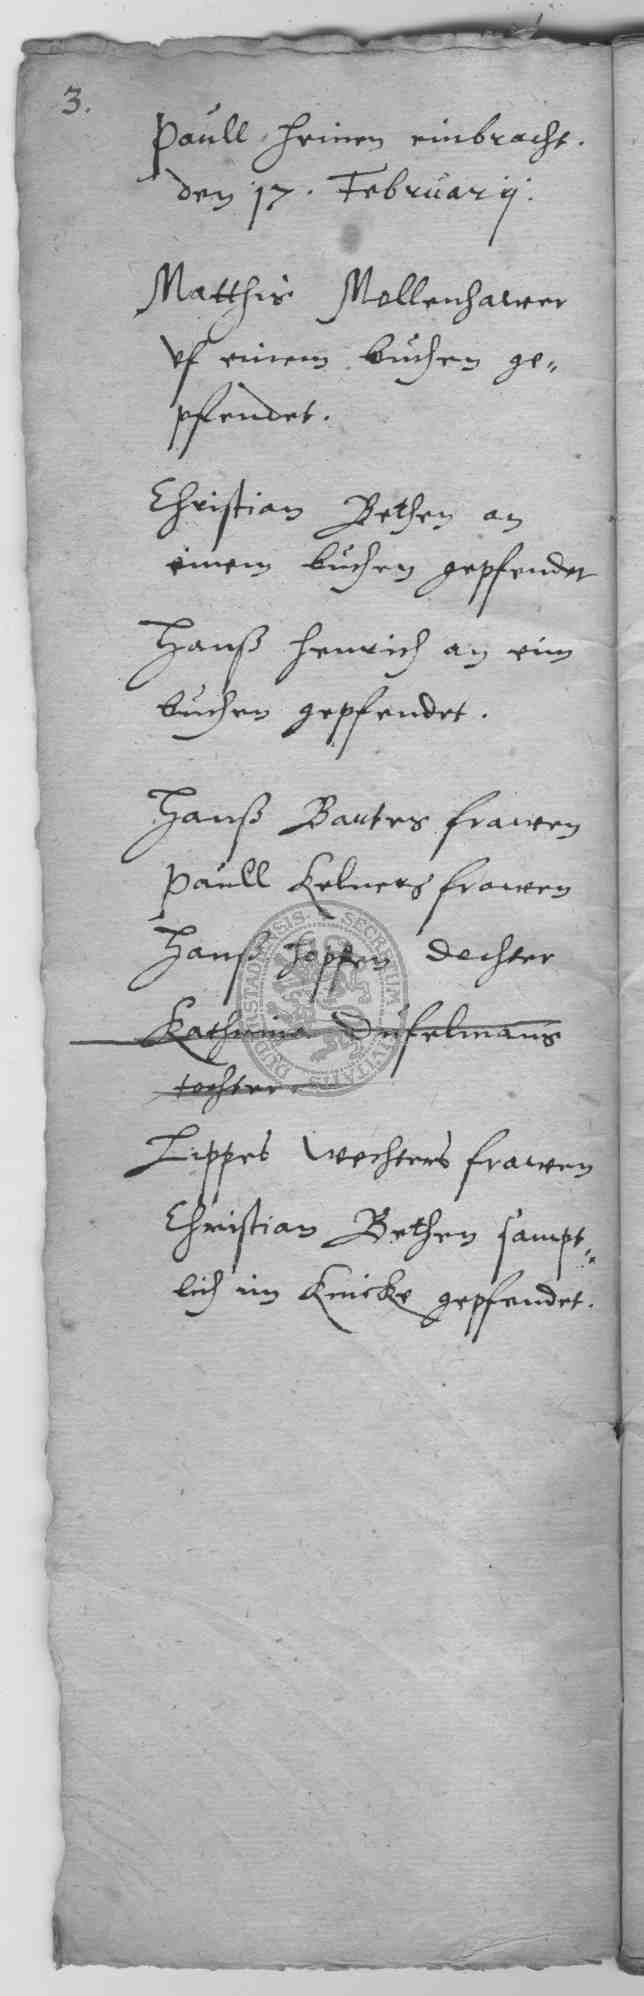 3.
Paull Heinen einbracht.
den 17. Februarij.
Matthis Mollenhawer
vf einem buchen ge„
pfendet.
Christian Bethen an
einem buchen gepfendet
Hanß Henrich an eim
buchen gepfendet.
Hanß Bauters frawen
Paull Kelners frawen
Hanß Hoppen dochter
Kathrina Dufelmans
tochter.
Lippes Wechters frawen
Christian Bethen sampt„
lich im Knicke gepfendet.
SECRETUM CIVITATIS DUDERSTADENSIS